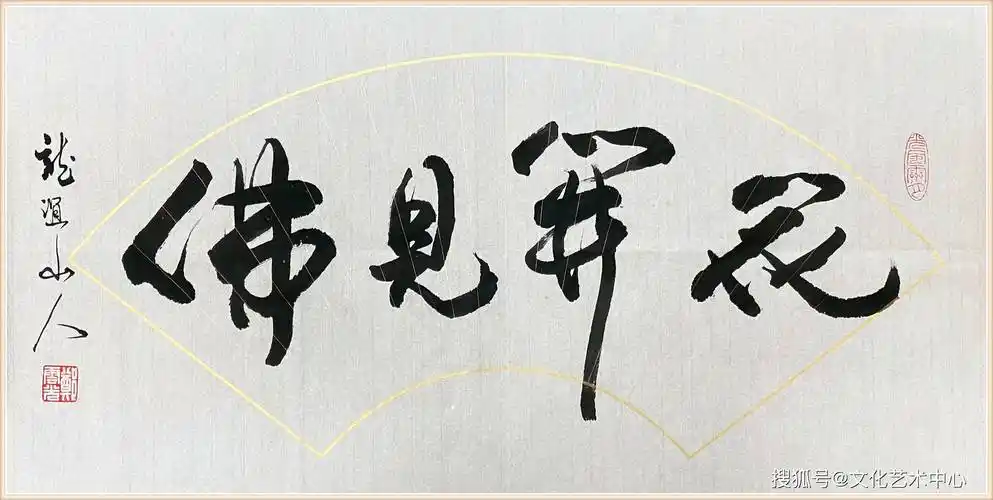 花開見佛
龍山人
搜狐号@文化艺术中心